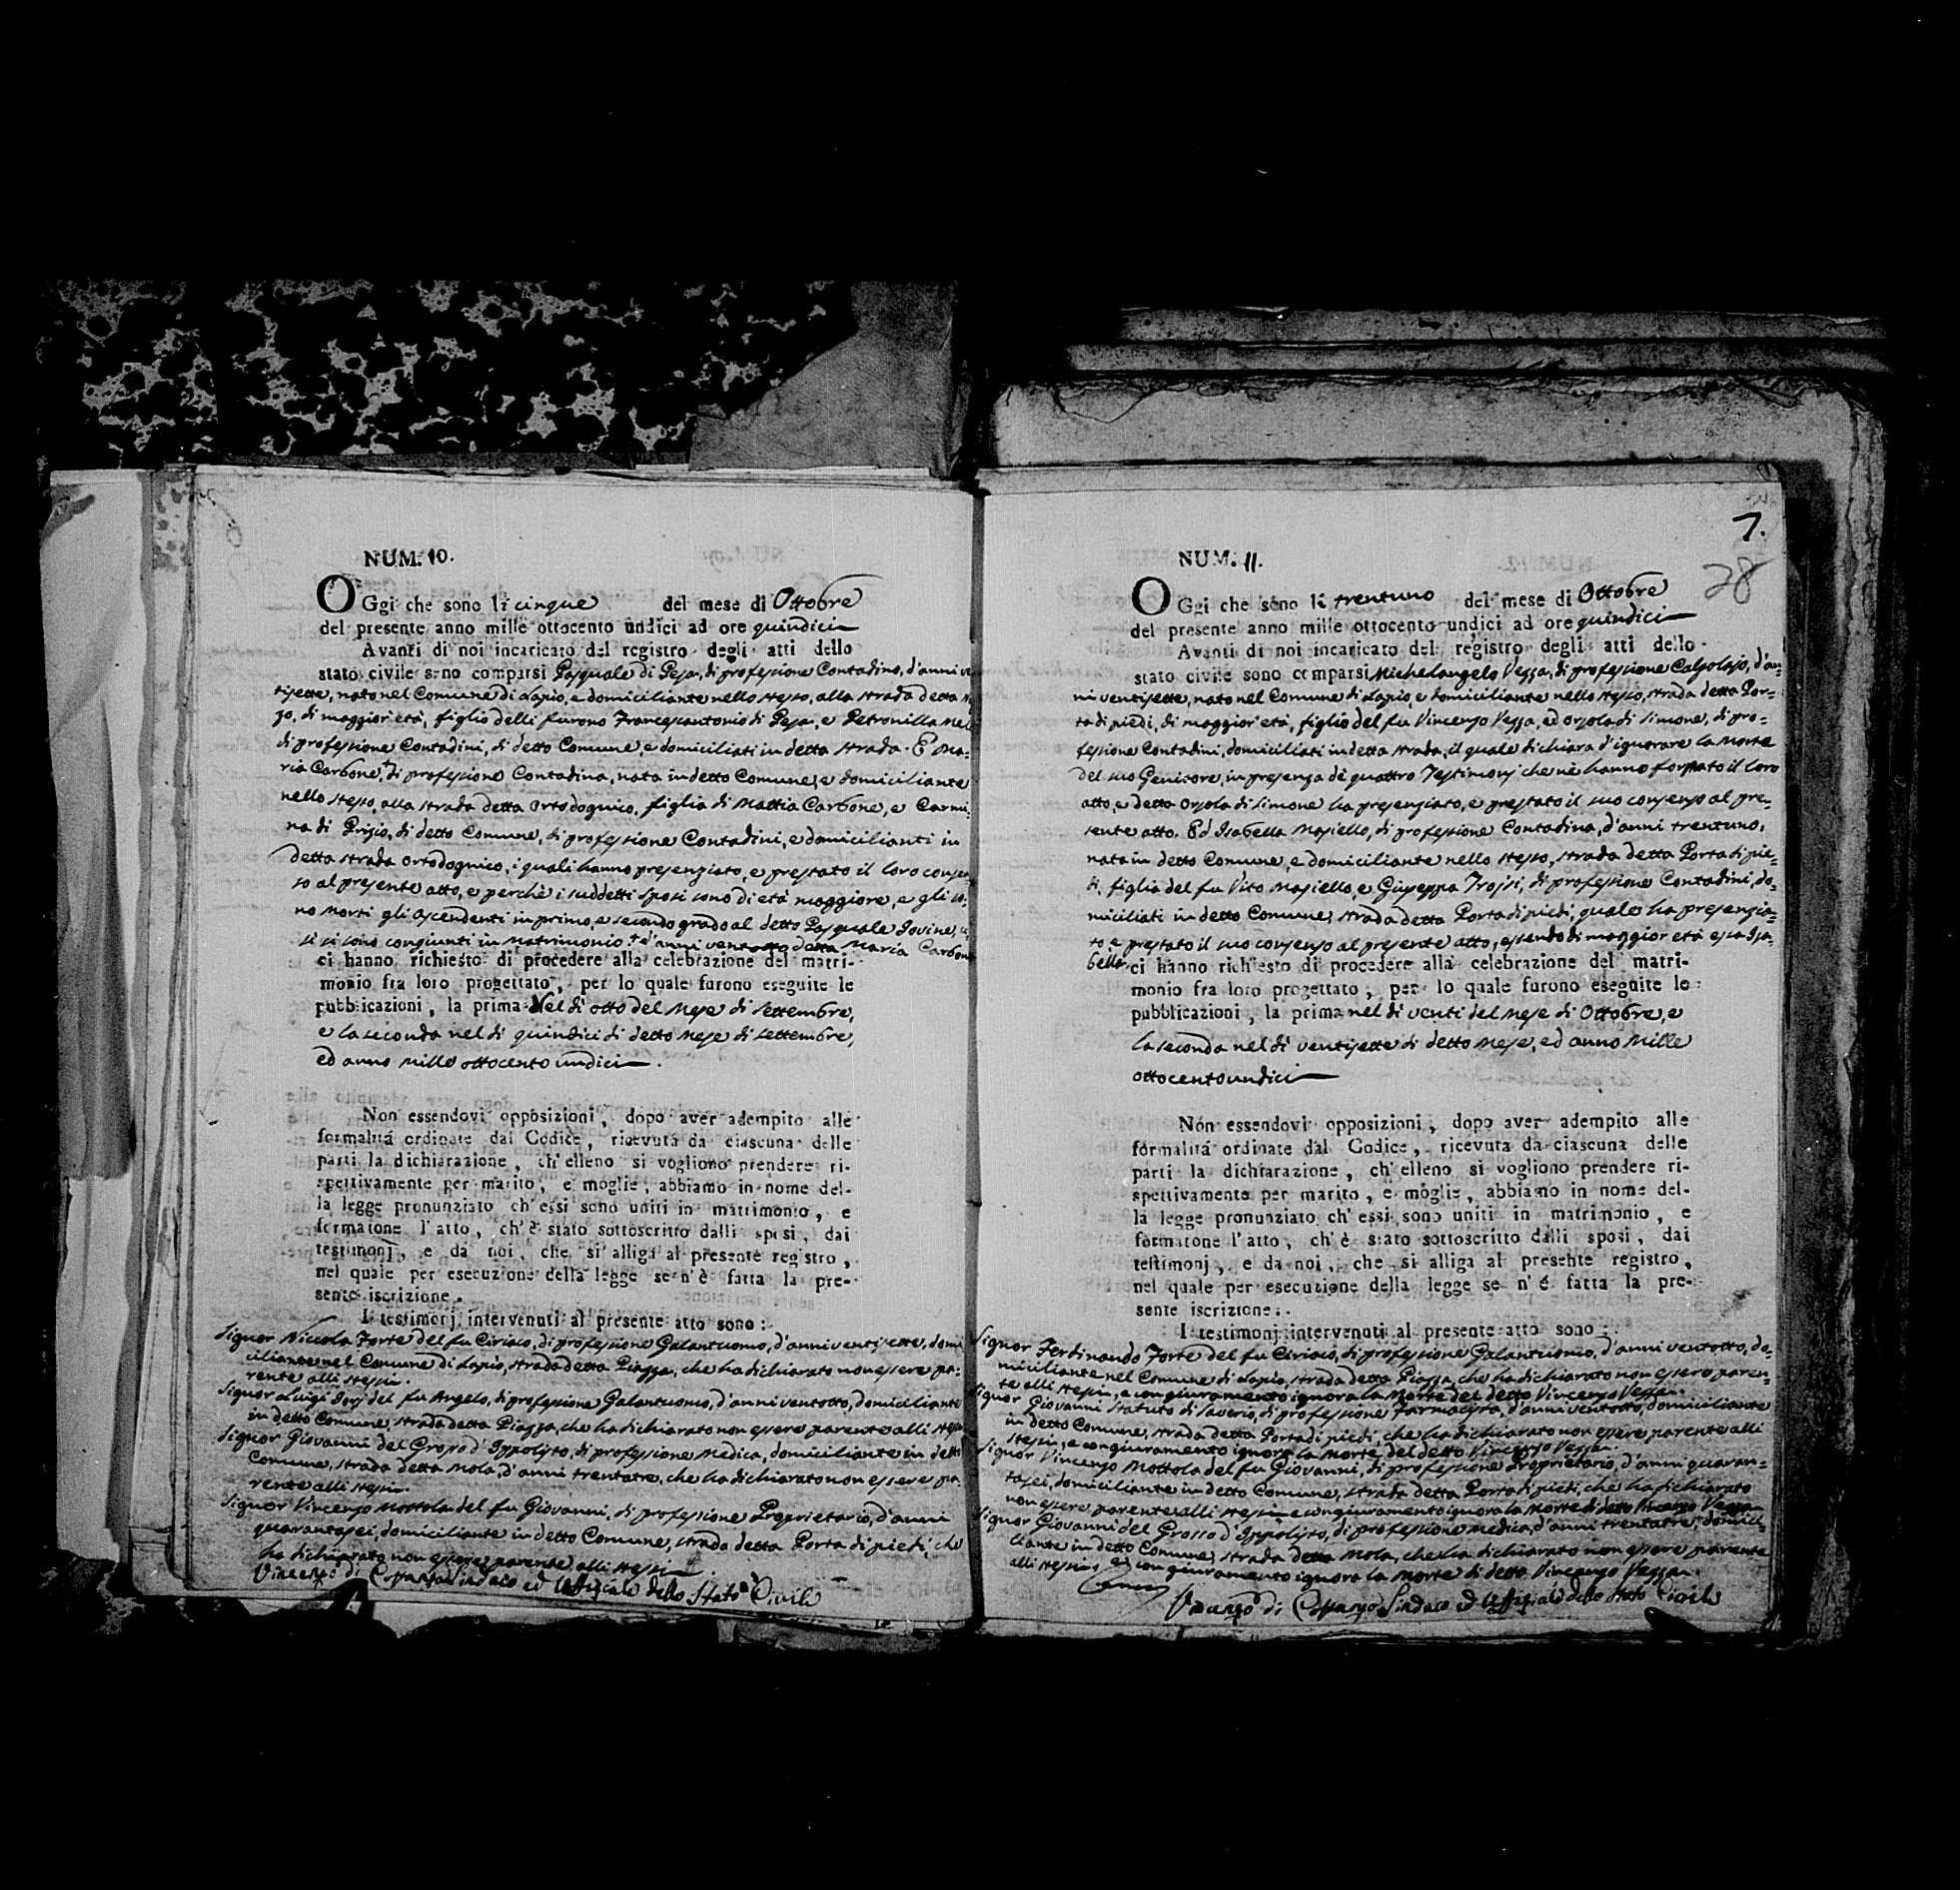 NUM. 10.
OGgi che sono li cinque del mese di Ottobre
del presente anno mille ottocento undici ad ore quindici
Avanti di noi incaricato del registro degli atti dello
stato civile sono comparsi Pasquale di Pesa, di professione Contadino, d'anni
tisette, nato nel Comune di Lapio, e domiciliante nello stesso, alla strada detta
zo, di maggior età, figlio delli furono Francescantonio di Pesa, e Petronilla
di professione Contadini, di detto Comune, e domiciliati in detta strada. E Ma=
ria Carbone, di professione Contadina, nata in detto Comune, e domiciliante
nello stesso, alla strada detta Ortodognico, figlia di Mattia Carbone, e Carmi=
na di Prizio, di detto Comune, di professione Contadini, e domicilianti in
detta strada Ortodognico, i quali hanno presenziato, e prestato il loro consen=
so al presente atto, e perchè i suddetti sposi sono di età maggiore, e gli so=
no morti gli ascendenti in primo, e secondo grado al detto Pasquale Iovine,
si si sono congiunti in matrimonio. † d'anni ventotto detta Maria Carbone
ci hanno richiesto di procedere alla celebrazione del matri-
monio fra loro progettato, per lo quale furono eseguite le
pubblicazioni, la prima Nel dì otto del Mese di Settembre,
e la seconda nel dì quindici di detto Mese di Settembre,
ed anno mille ottocento undici.
Non essendovi opposizioni, dopo aver adempito alle
formalitá ordinate dal Codice, ricevuta da ciascuna delle
parti la dichiarazione, ch'elleno si vogliono prendere ri-
spettivamente per marito, e moglie, abbiamo in nome del-
la legge pronunziato ch'essi sono uniti in matrimonio, e
formatone l'atto, ch'è stato sottoscritto dalli sposi, dai
testimonj, e da noi, che si alliga al presente registro,
nel quale per esecuzione della legge se n'è fatta la pre-
sente iscrizione.
I testimonj intervenuti al presente atto sono:
Signor Niccola Forte del fu Ciriaco, di professione Galantuomo, d'anni ventisette, domi
ciliante nel Comune di Lapio, strada detta Piazza, che ha dichiarato non essere pa=
rente alli stessi.
Signor Luigi del fu Angelo, di professione Galantuomo, d'anni ventotto, domiciliante
in detto Comune, strada detta Piazza, che ha dichiarato non essere parente alli stessi
Signor Giovanni del Grosso d'Ippolisto, di professione Medica, domiciliante in detto
Comune, strada detta Mola, d'anni trentatre, che ha dichiarato non essere pa=
rente alli stessi.
Signor Vincenzo Mottola del fu Giovanni, di professione Proprietario, d'anni
quarantasei, domiciliante in detto Comune, strada detta Porta di piedi, che
ha dichiarato non essere parente alli stessi.
Vincenzo di Sindaco ed Uffiziale dello Stato Civile
7.
28
NUM. 11.
OGgi che sono li trentuno del mese di Ottobre
del presente anno mille ottocento undici ad ore quindici
Avanti di noi incaricato del registro degli atti dello
stato civile sono comparsi Michelangelo Vezza, di professione Calzolajo, d'an=
ni ventisette, nato nel Comune di Lapio, e domiciliante nello stesso, strada detta Por=
ta di piedi, di maggior età, figlio del fu Vincenzo Vezza, ed Orsola di Simone, di pro=
fessione Contadini, domiciliati in detta strada, il quale dichiara d'ignorare la Morte
del suo Genitore, in presenza de quattro Testimonj che ne hanno formato il loro
atto, e detta Orsola di Simone ha presenziato, e prestato il suo consenso al pre=
sente atto. Ed Isabella Masiello, di professione Contadina, d'anni trentuno,
nata in detto Comune, e domiciliante nello stesso, strada detta Porta di pie=
di, figlia del fu Vito Masiello, e Giuseppa Troisi, di professione Contadini, do=
miciliati in detto Comune, strada detta Porta di piedi, quale ha presenzia=
to, e prestato il suo consenso al presente atto, essendo di maggior età essa Isa=
bella ci hanno richiesto di procedere alla celebrazione del matri-
monio fra loro progettato, per lo quale furono eseguite le
pubblicazioni, la prima nel dì venti del Mese di Ottobre, e
la seconda nel dì ventisette di detto Mese, ed anno Mille
ottocentoundici
Non essendovi opposizioni, dopo aver adempito alle
formalitá ordinate dal Codice, ricevuta da ciascuna delle
parti la dichiarazione, ch'elleno si vogliono prendere ri-
spettivamente per marito, e moglie, abbiamo in nome del-
la legge pronunziato ch'essi sono uniti in matrimonio, e
formatone l'atto, ch'è stato sottoscritto dalli sposi, dai
testimonj, e da noi, che si alliga al presente registro,
nel quale per esecuzione della legge se n'è fatta la pre-
sente iscrizione.
I testimonj intervenuti al presente atto sono:
Signor Ferdinando Forte del fu Ciriaco, di professione Galantuomo, d'anni ventotto, do=
miciliante nel Comune di Lapio, strada detta Piazza, che ha dichiarato non essere paren=
te alli stessi, e con giuramento ignora la Morte del detto Vincenzo Vezza.
Signor Giovanni Statuto di Saverio, di professione Farmacista, d'anni ventotto, domiciliante
in detto Comune, strada detta Porta di piedi, che ha dichiarato non essere parente alli
stessi, e con giuramento ignora la Morte del detto Vincenzo Vezza.
Signor Vincenzo Mottola del fu Giovanni, di professione Proprietario, d'anni quaran=
tasei, domiciliante in detto Comune, strada detta Porta di piedi, che ha dichiarato
non essere parente alli stessi, e con giuramento ignora la Morte di detto Vincenzo Vezza
Signor Giovanni del Grosso d'Ippolisto, di professione Medica, d'anni trentatre, domici=
liante in detto Comune, strada detta Mola, che ha dichiarato non essere parente
alli stessi, e con giuramento ignora la Morte di detto Vincenzo Vezza.
Vincenzo di Sindaco ed Uffiziale dello Stato Civile